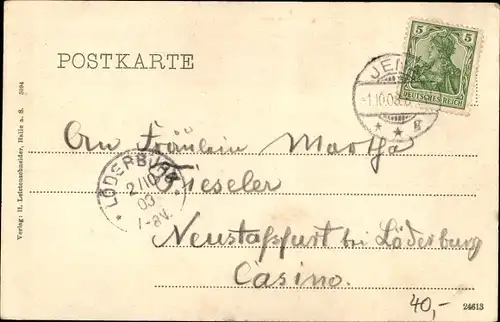 POSTKARTE
5 5
DEUTSCHES REICH
JEN
1.10.03.
* * g
An Fräulein Martha
Tieseler
LÖDERBURG
2/10
03
7-8V.
Neustaßfurt bei Löderburg
Casino.
40,-
24613
Verlag: H. Leistenschneider, Halle a. S. 5094